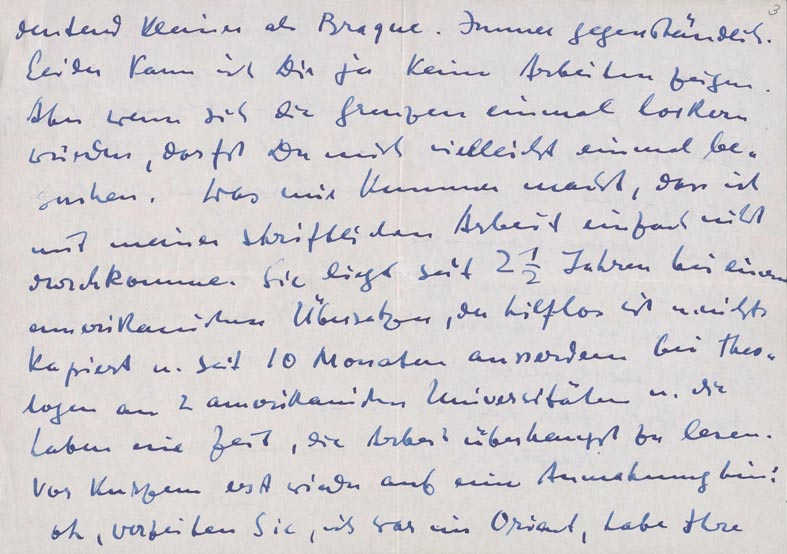 3
deutend kleiner als Braque. Immer gegenständlich.
Leider kann ich Dir ja keine Arbeiten zeigen.
Aber wenn sich die Grenzen einmal lockern
würden, darfst Du mich vielleicht einmal be-
suchen. Was mir Kummer macht, dass ich
mit meiner schriftlichen Arbeit einfach nicht
durchkomme. Sie liegt seit 2 1/2 Jahren bei einem
amerikanischen Übersetzer, der hilflos ist u. nichts
kapiert u. seit 10 Monaten ausserdem bei Theo-
logen an 2 amerikanischen Universitäten u. die
haben nie Zeit, die Arbeit überhaupt zu lesen.
Vor Kurzem erst wieder auf eine Anmahnung hin:
oh, verzeihen Sie, ich war im Orient, habe Ihre